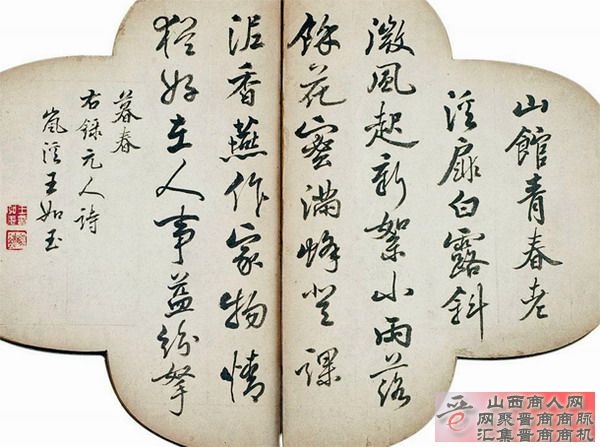 山館青春老
溪扉白露斜
微風起新絮小雨落
餘花蜜滿蜂登課
泥香燕作家物情
猶好在人事益紛拏
暮春
右錄元人詩
嵐溪王如玉
山西商人网
网聚晋商商脉
汇集晋商商机